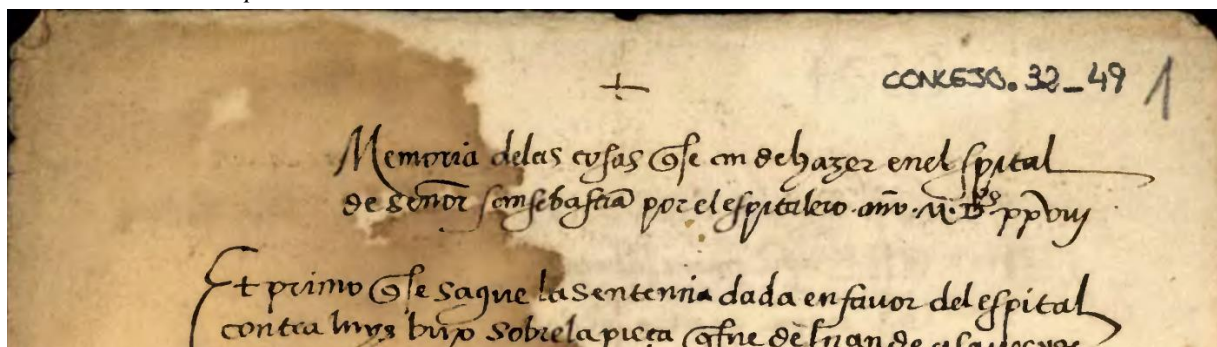 +
CONCEJO. 32_49 1
Memoria delas cosas q̃ se an de hazer enel spital
de señor sansebastiã por el espitalero. año. M. D.
Et primo q̃ se saque la sentencia dada en fauor del espital
contra luys sobre la pieça q̃ fue de